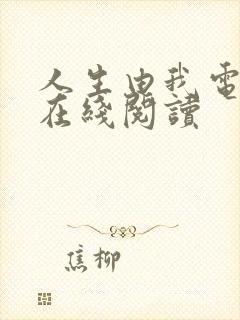 人生由我電
在綫閱讀
焦柳